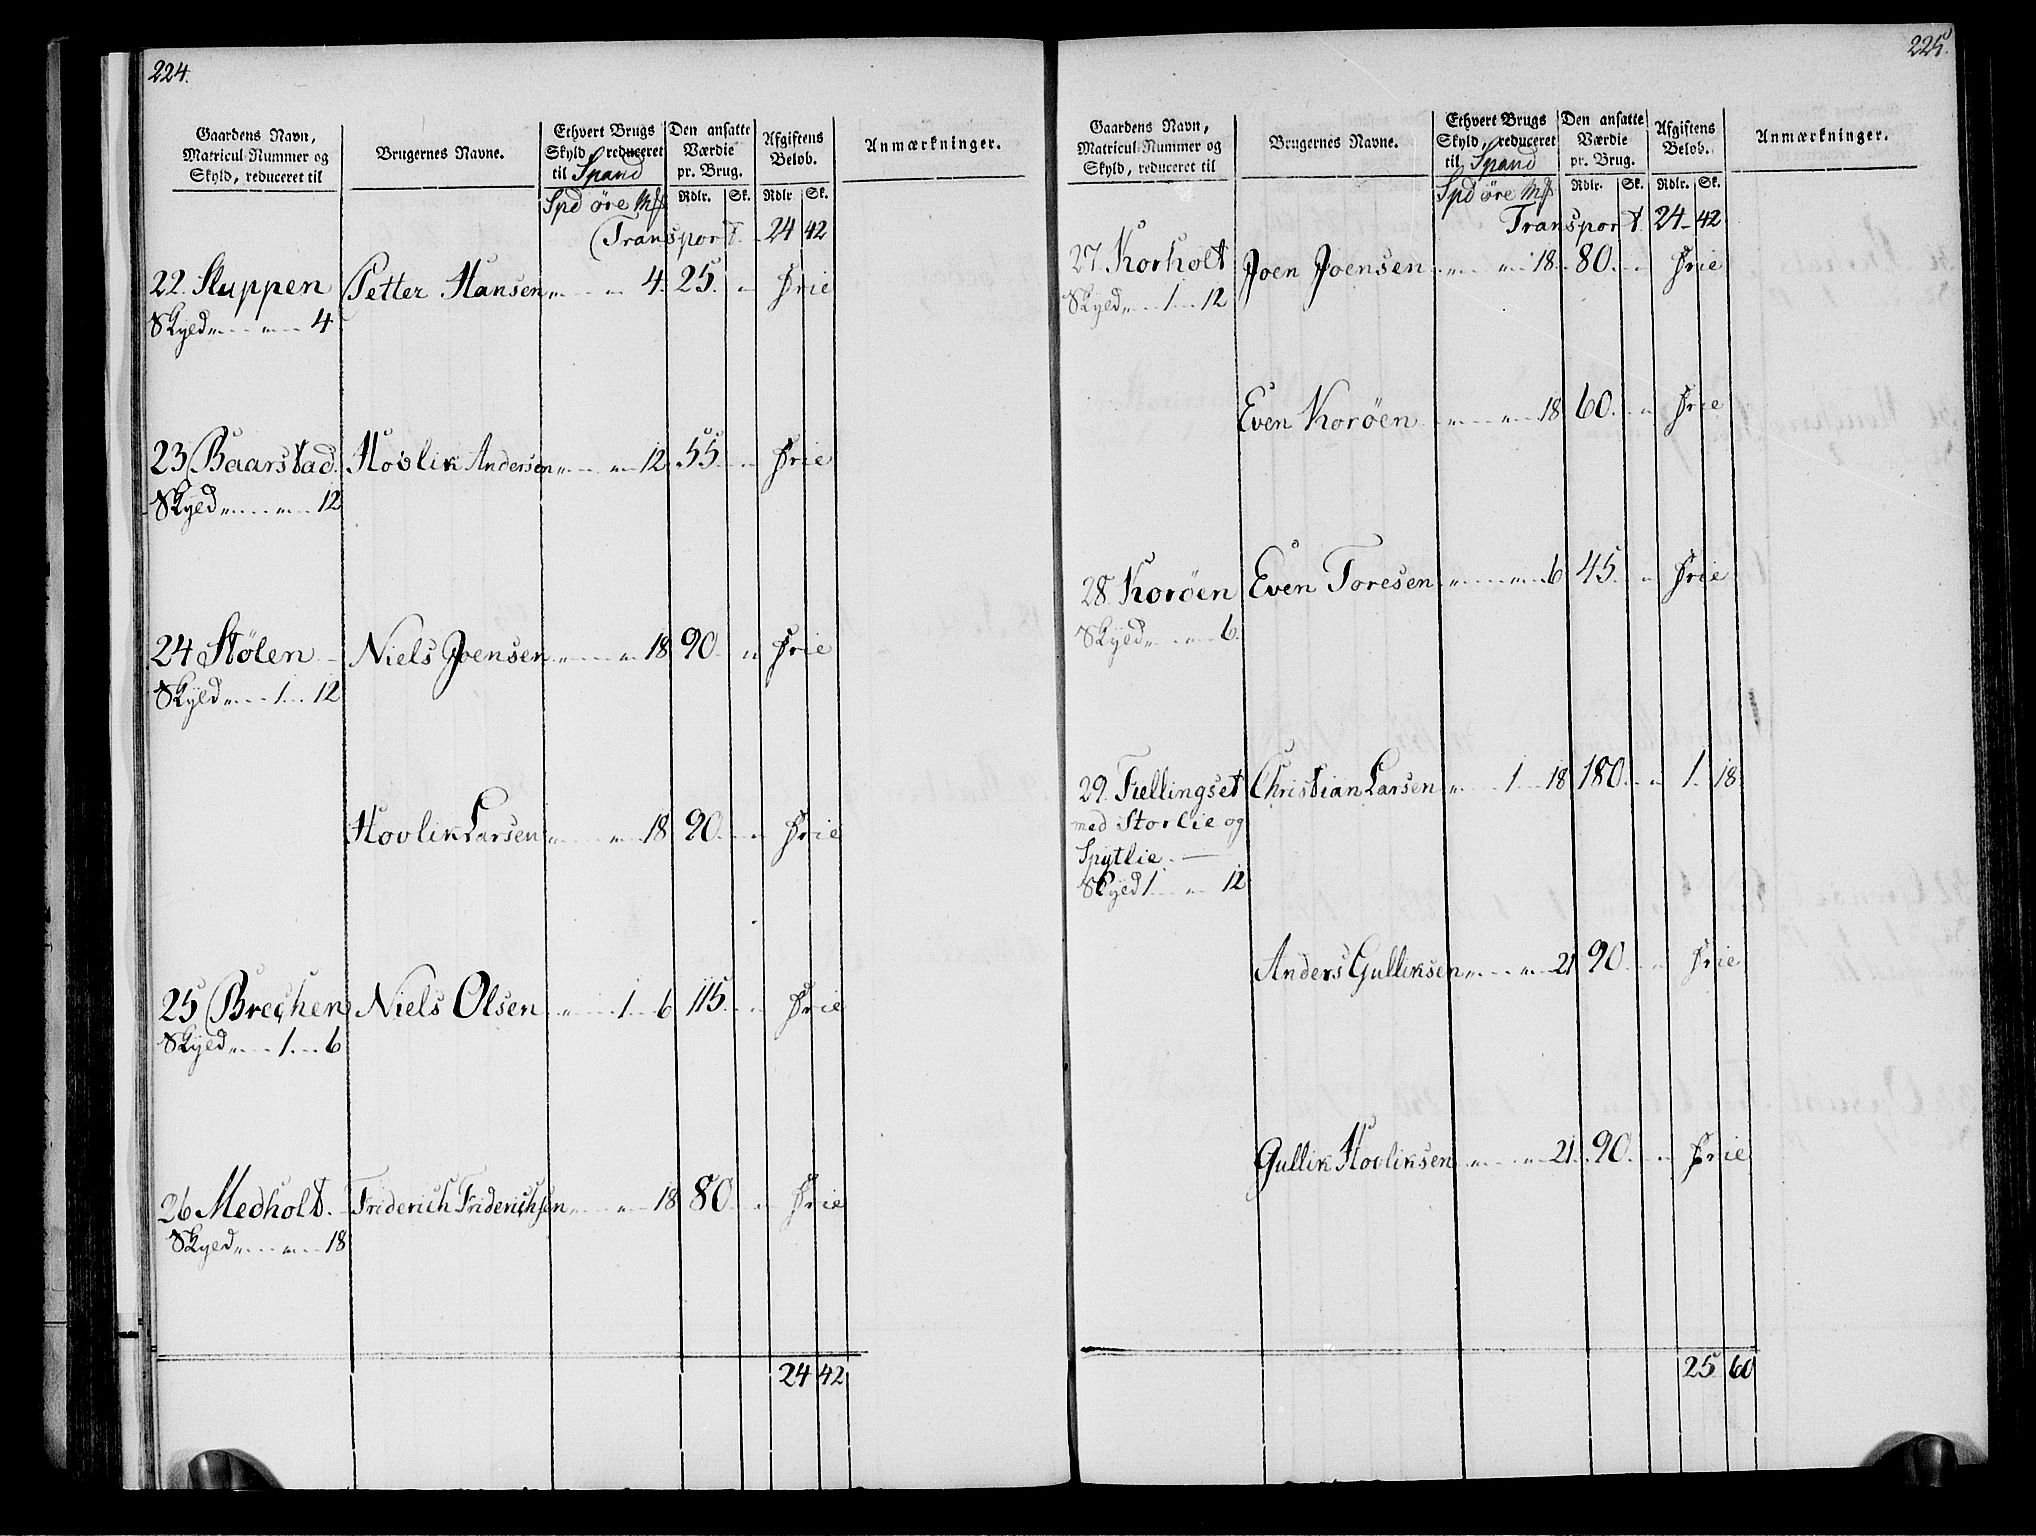 224.
Gaardens Navn, Matricul-Nummer og Skyld, reduceret til
Brugernes Navne.
Ethvert Brugs Skyld, reduceret til Spand
Den ansatte Værdie pr. Brug.
Afgiftens Beløb.
Anmærkninger.
Spd øre Mk Rdlr. Sk. Rdlr. Sk.
Transport. 24 42
22. Sluppen Petter Hansen „ „ 4. 25. „ Frie
Skyld „ „ 4
23 Baarstad. Hovlik Andersen „ „ 12 55. „ Frie
Skyld „ „ 12
24 Stølen Niels Joensen „ „ 18 90 „ Frie
Skyld „ 1. 12
Hovlik Larsen „ „ 18 90. „ Frie
25 Brechen Niels Olsen „ 1 6 115. „ Frie
Skyld „ 1. 6
26 Medholt. Friderich Friderichsen „ „ 18 80 „ Frie
Skyld „ „ 18
24 42
225.
Gaardens Navn, Matricul-Nummer og Skyld, reduceret til
Brugernes Navne.
Ethvert Brugs Skyld, reduceret til Spand
Den ansatte Værdie pr. Brug.
Afgiftens Beløb.
Anmærkninger.
Spd øre Mk Rdlr. Sk. Rdlr. Sk.
Transport. 24 42
27. Korholt Joen Joensen „ „ 18. 80. „ Frie
Skyld „ 1. 12
Even Korøen „ „ 18 60. „ Frie
28. Korøen Even Toresen „ „ 6 45. „ Frie
Skyld „ „ 6.
29. Fiellingset Christian Larsen „ 1 18 180. „ 1. 18
med Storlie og
Spytlie.
Skyld 1. „ 12
Anders Gulliksen „ „ 21 90. „ Frie
Gullik Hovliksen „ „ 21. 90. „ Frie
25 60